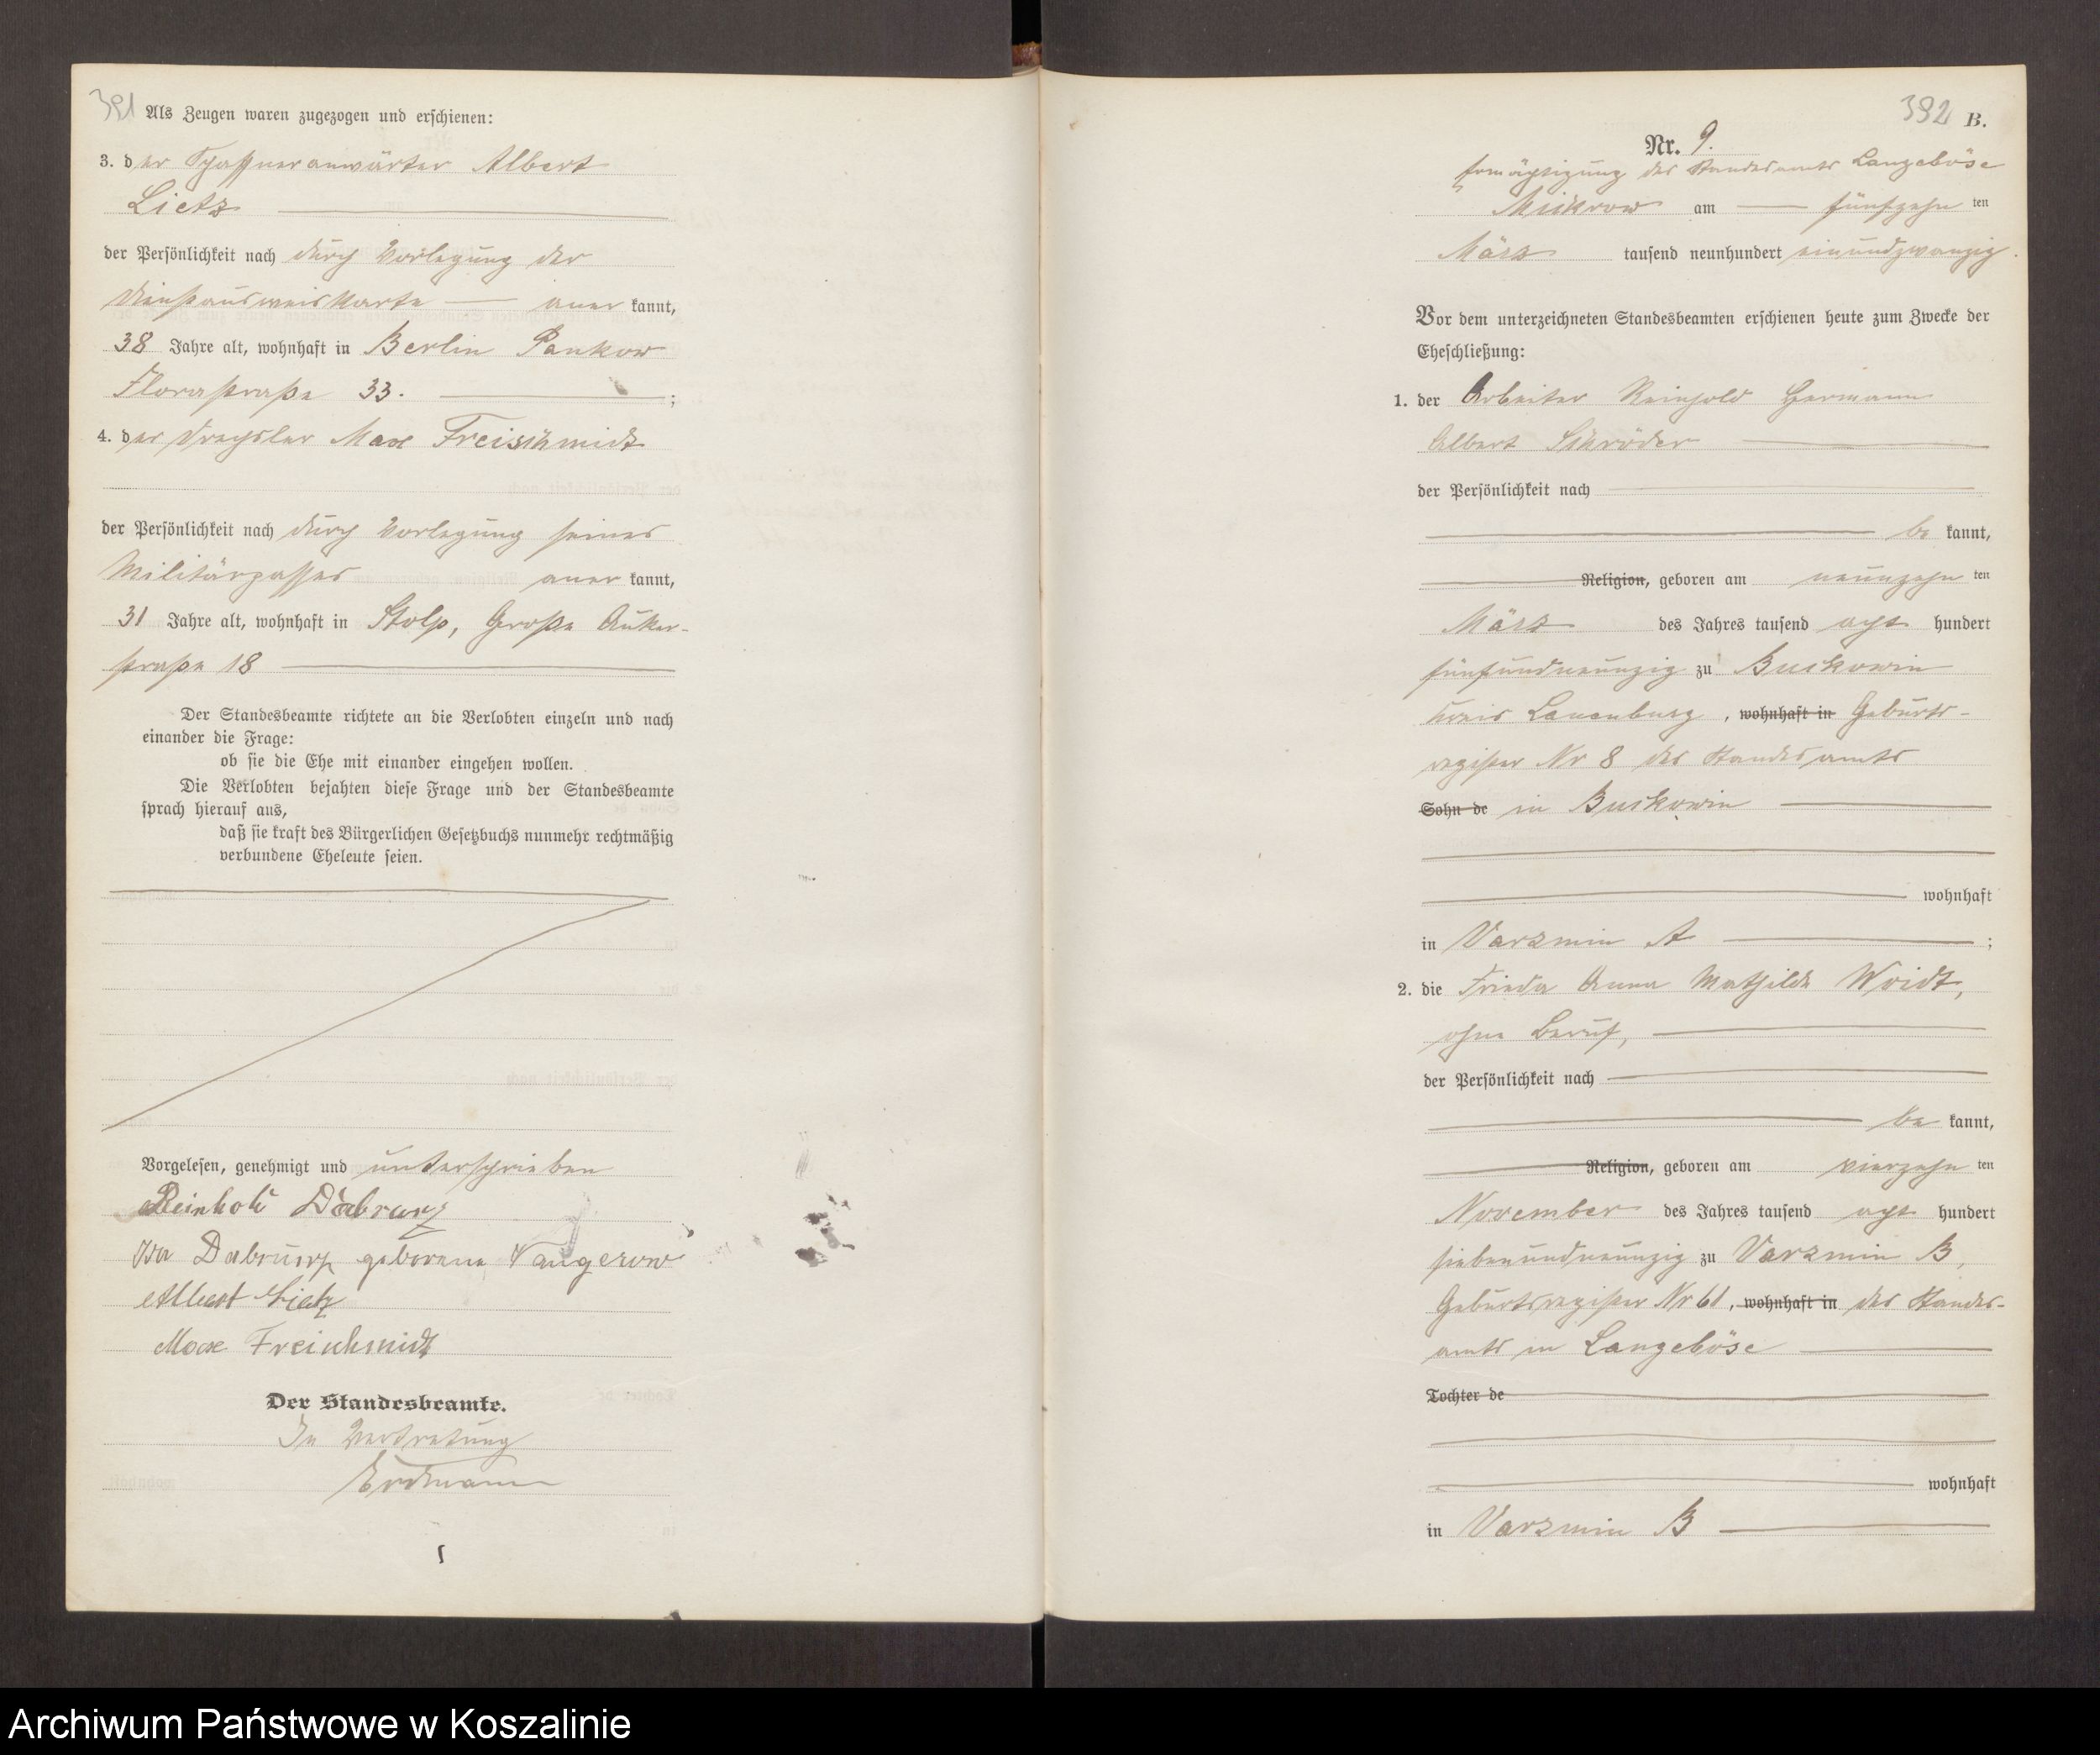 391
Als Zeugen waren zugezogen und erschienen:
3. der Schaffneranwärter Albert
Lietz
der Persönlichkeit nach durch Vorlegung der
Dienstausweiskarte aner kannt,
38 Jahre alt, wohnhaft in Berlin Pankow
Florastraße 33. ;
4. der Drechsler Max Freischmidt
der Persönlichkeit nach durch Vorlegung seines
Militärpasses aner kannt,
31 Jahre alt, wohnhaft in Stolp, Große Auker-
straße 18
Der Standesbeamte richtete an die Verlobten einzeln und nach
einander die Frage:
ob sie die Ehe mit einander eingehen wollen.
Die Verlobten bejahten diese Frage und der Standesbeamte
sprach hierauf aus,
daß sie kraft des Bürgerlichen Gesetzbuchs nunmehr rechtmäßig
verbundene Eheleute seien.
Vorgelesen, genehmigt und unterschrieben
Reinhold Dabrunz
Ida Dabrunz geborene Vangerow
Albert Lietz
Max Freischmidt
Der Standesbeamte.
In Vertretung
Erdmann
392 B.
Nr. 9.
des Standesamts Langeböse
Mickrow am fünfzehn ten
März tausend neunhundert einundzwanzig.
Vor dem unterzeichneten Standesbeamten erschienen heute zum Zwecke der
Eheschließung:
1. der Arbeiter Reinhold Hermann
Albert Schröder
der Persönlichkeit nach
be kannt,
Religion, geboren am neunzehn ten
März des Jahres tausend acht hundert
fünfundneunzig zu Buckowin
Kreis Lauenburg, wohnhaft in Geburts-
register Nr 8 des Standesamts
Sohn de in Buckowin
wohnhaft
in Varzmin A ;
2. die Frieda Anna Mathilde Woidt,
ohne Beruf,
der Persönlichkeit nach
be kannt,
Religion, geboren am vierzehn ten
November des Jahres tausend acht hundert
siebenundneunzig zu Varzmin B,
Geburtsregister Nr 61, wohnhaft in des Standes-
amts in Langeböse
Tochter de
wohnhaft
in Varzmin B
Archiwum Państwowe w Koszalinie